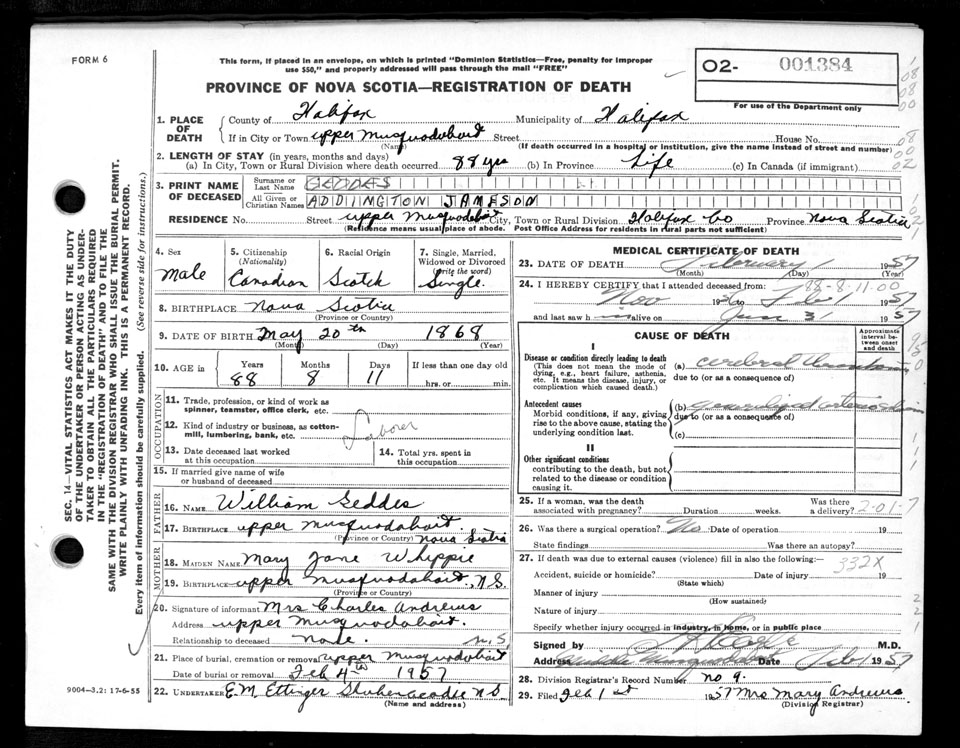 FORM 6
This form, if placed in an envelope, on which is printed "Dominion Statistics—Free, penalty for improper
use $50," and properly addressed will pass through the mail "FREE"
PROVINCE OF NOVA SCOTIA—REGISTRATION OF DEATH
02- 001384
For use of the Department only
SEC. 14—VITAL STATISTICS ACT MAKES IT THE DUTY
OF THE UNDERTAKER OR PERSON ACTING AS UNDER-
TAKER TO OBTAIN ALL THE PARTICULARS REQUIRED
IN THE "REGISTRATION OF DEATH" AND TO FILE THE
SAME WITH THE DIVISION REGISTRAR WHO SHALL ISSUE THE BURIAL PERMIT.
WRITE PLAINLY WITH UNFADING INK. THIS IS A PERMANENT RECORD.
Every item of information should be carefully supplied. (See reverse side for instructions.)
1. PLACE OF DEATH County of Halifax Municipality of Halifax
If in City or Town upper Musquodoboit Street House No.
(Name) (If death occurred in a hospital or institution, give the name instead of street and number)
2. LENGTH OF STAY (in years, months and days)
(a) In City, Town or Rural Division where death occurred 88 yrs (b) In Province Life (c) In Canada (if immigrant)
3. PRINT NAME OF DECEASED
Surname or Last Name GEDDES
All Given or Christian Names ADDINGTON JAMESON
RESIDENCE No. Street upper Musquodoboit City, Town or Rural Division Halifax Co Province Nova Scotia
(Residence means usual place of abode. Post Office Address for residents in rural parts not sufficient)
4. Sex Male
5. Citizenship (Nationality) Canadian
6. Racial Origin Scotch
7. Single, Married, Widowed or Divorced (write the word) Single.
8. BIRTHPLACE Nova Scotia
(Province or Country)
9. DATE OF BIRTH May 20th 1868
(Month) (Day) (Year)
10. AGE in Years 88 Months 8 Days 11 If less than one day old
hrs. or min.
OCCUPATION
11. Trade, profession, or kind of work as
spinner, teamster, office clerk, etc.
12. Kind of industry or business, as cotton-
mill, lumbering, bank, etc. Laborer
13. Date deceased last worked
at this occupation
14. Total yrs. spent in
this occupation
15. If married give name of wife
or husband of deceased
FATHER
16. NAME William Geddes
17. BIRTHPLACE upper Musquodoboit
(Province or Country) Nova Scotia
MOTHER
18. MAIDEN NAME Mary Jane Whippie
19. BIRTHPLACE upper Musquodoboit, N.S.
(Province or Country)
20. Signature of informant Mrs Charles Andrews
Address upper Musquodoboit.
Relationship to deceased none. N.S
21. Place of burial, cremation or removal upper Musquodoboit
Date of burial or removal Feb 4th 1957
22. UNDERTAKER E.M Ettinger Shubenacadie N S
(Name and address)
9004-3.2: 17-6-55
MEDICAL CERTIFICATE OF DEATH
23. DATE OF DEATH February 1 1957
(Month) (Day) (Year)
88-8-11.00
24. I HEREBY CERTIFY that I attended deceased from:
Nov 19 to Feb 1 1957
and last saw h im alive on Jan 31 1957
CAUSE OF DEATH
Approximate interval between onset and death
I
Disease or condition directly leading to death
(This does not mean the mode of dying, e.g., heart failure, asthenia, etc. It means the disease, injury, or complication which caused death.)
(a) cerebral
due to (or as a consequence of)
Antecedent causes
Morbid conditions, if any, giving rise to the above cause, stating the underlying condition last.
(b) generalized
due to (or as a consequence of)
(c)
II
Other significant conditions
contributing to the death, but not related to the disease or condition causing it.
25. If a woman, was the death
associated with pregnancy? Duration weeks. Was there a delivery? 2-01-7
26. Was there a surgical operation? No Date of operation 19
State findings Was there an autopsy?
27. If death was due to external causes (violence) fill in also the following:— 332X
Accident, suicide or homicide? Date of injury 19
(State which)
Manner of injury
(How sustained)
Nature of injury
Specify whether injury occurred in industry, in home, or in public place
Signed by M.D.
Address Middle Musquodoboit Date Feb 1 1957
28. Division Registrar's Record Number no 9.
29. Filed Feb 1st 1957 Mrs Mary Andrews
(Division Registrar)